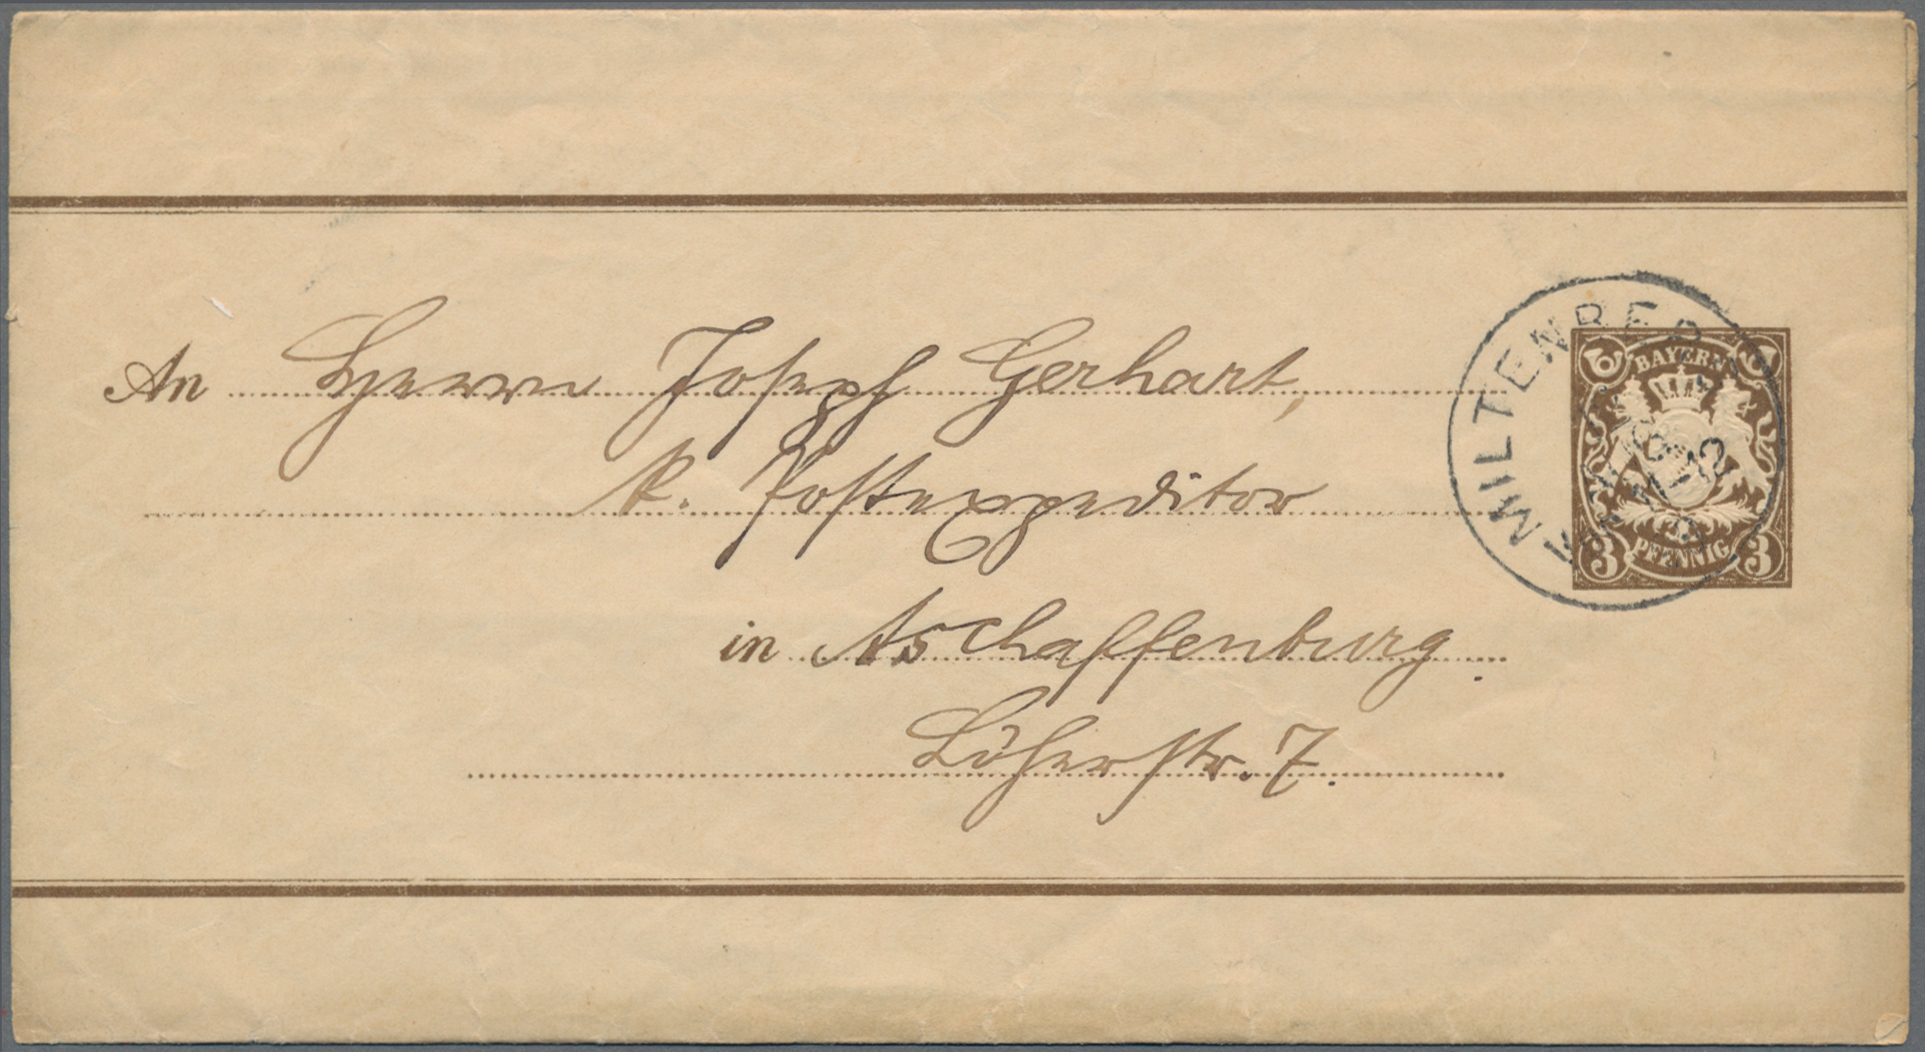 An Herrn Joseph Gerhart,
k. Postexpeditor
in Aschaffenburg.
Löherstr. 7.
MILTENBERG
BAYERN
3 PFENNIG 3